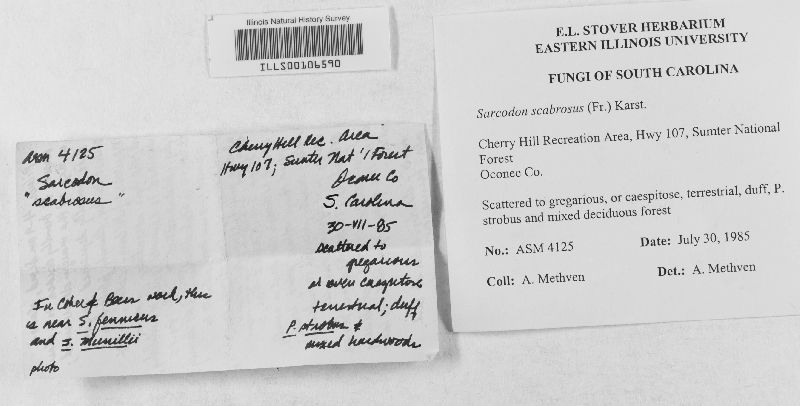 Illinois Natural History Survey
ILLS00106590
asm 4125
Sarcodon
"scabrosus"
In Coker & Beers work, this
is near S. fennicus
and S. Murrillii
photo
Cherry Hill Rec. Area
Hwy 107; Sumter Nat'l Forest
Oconee Co
S. Carolina
30-VII-85
scattered to
gregarious
or even caespitose
terrestrial; duff
P. strobus &
mixed hardwoods
E.L. STOVER HERBARIUM
EASTERN ILLINOIS UNIVERSITY
FUNGI OF SOUTH CAROLINA
Sarcodon scabrosus (Fr.) Karst.
Cherry Hill Recreation Area, Hwy 107, Sumter National
Forest
Oconee Co.
Scattered to gregarious, or caespitose, terrestrial, duff, P.
strobus and mixed deciduous forest
No.: ASM 4125 Date: July 30, 1985
Coll: A. Methven Det.: A. Methven